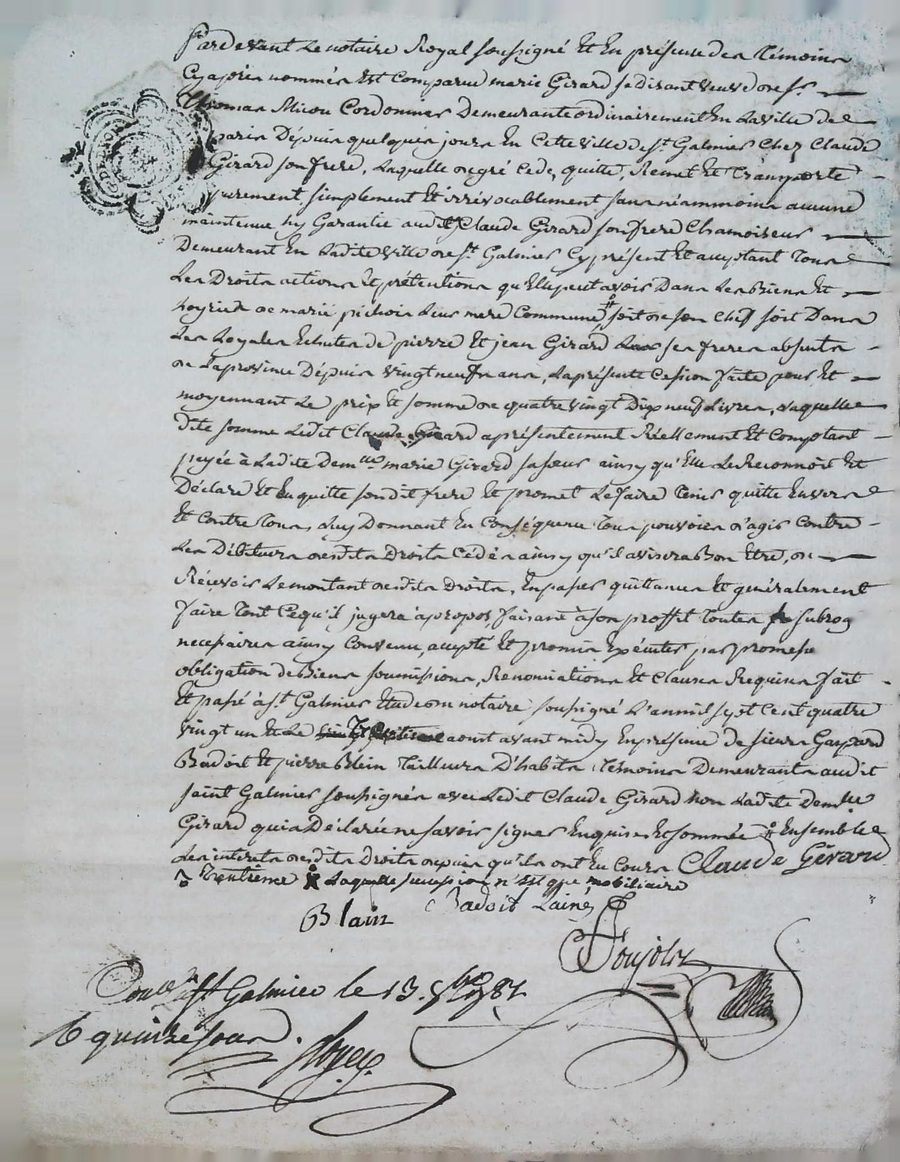 Pardevant Le notaire Royal soussigné Et En présence des témoins
Cyaprès nommés Est Comparue marie Girard se disant veuve de sr
Thomas Micou Cordonnier Demeurante ordinairement En La ville de
paris Dépuis quelquis jours En Cette ville de st Galmier Chez Claude
Girard son frere, Laquelle de gré Cede, quitte, Remet Et Transporte
purement, simplement Et irrévocablement sans néammoins aucune
maintenue ny Garantie audit Claude Girard son frere Chamoiseur
Demeurant En Ladite ville de st Galmier Cy présent Et acceptant Tous
Les Droits actions Et prétentions qu'Elle peut avoir Dans Les Biens Et
hoyrie de marie pichois Leur mere Commune, soit de son Chef soit Dans
Les Loyales Echutes de pierre Et jean Girard ses freres absents
de La province Dépuis vingt neuf ans, La présente Cession faite pour Et
moyennant Le prix Et somme de quatre vingt Dix neuf Livres, Laquelle
dite somme Ledit Claude Girard a présentement Réellement Et Comptant
payée à Ladite Demlle marie Girard sa sœur ainsy qu'Elle Le Reconnoit Et
Déclare Et En quitte sondit frere Et promet Le faire Tenir quitte Envers
Et Contre Tous, Luy Donnant En Conséquence Tous pouvoirs d'agir Contre
Les Débiteurs desdits Droits Cédés ainsy qu'il avisera Bon Etre, de
Récevoir Le montant desdits Droits, En passer quittance Et généralement
faire Tout Ce qu'il jugera àpropos, faisant à son proffit Toutes subrog
necessaires ainsy Convenu, accepté Et promis Exécuter par promesse
obligation de Biens soumissions, Renonciations Et Clauses Requises fait
Et passé à st Galmier Etude du notaire soussigné L'an mil sept Cent quatre
vingt un Et Le aout avant midy En présence de sieurs Gaspard
Badoit Et pierre Blein Tailleurs D'habits Témoins Demeurants audit
saint Galmier soussignés avec Ledit Claude Girard non Ladite Demlle
Girard qui a Déclaré ne savoir signer Enquise Et sommée Ensemble
Les interets desdits Droits depuis qu'ils ont Eu Cours Claude Gérard
Laquelle succession n'est que mobiliaire
Blain Badoit Lainé
Poujolz
à st Galmier le 13
quinze sous.